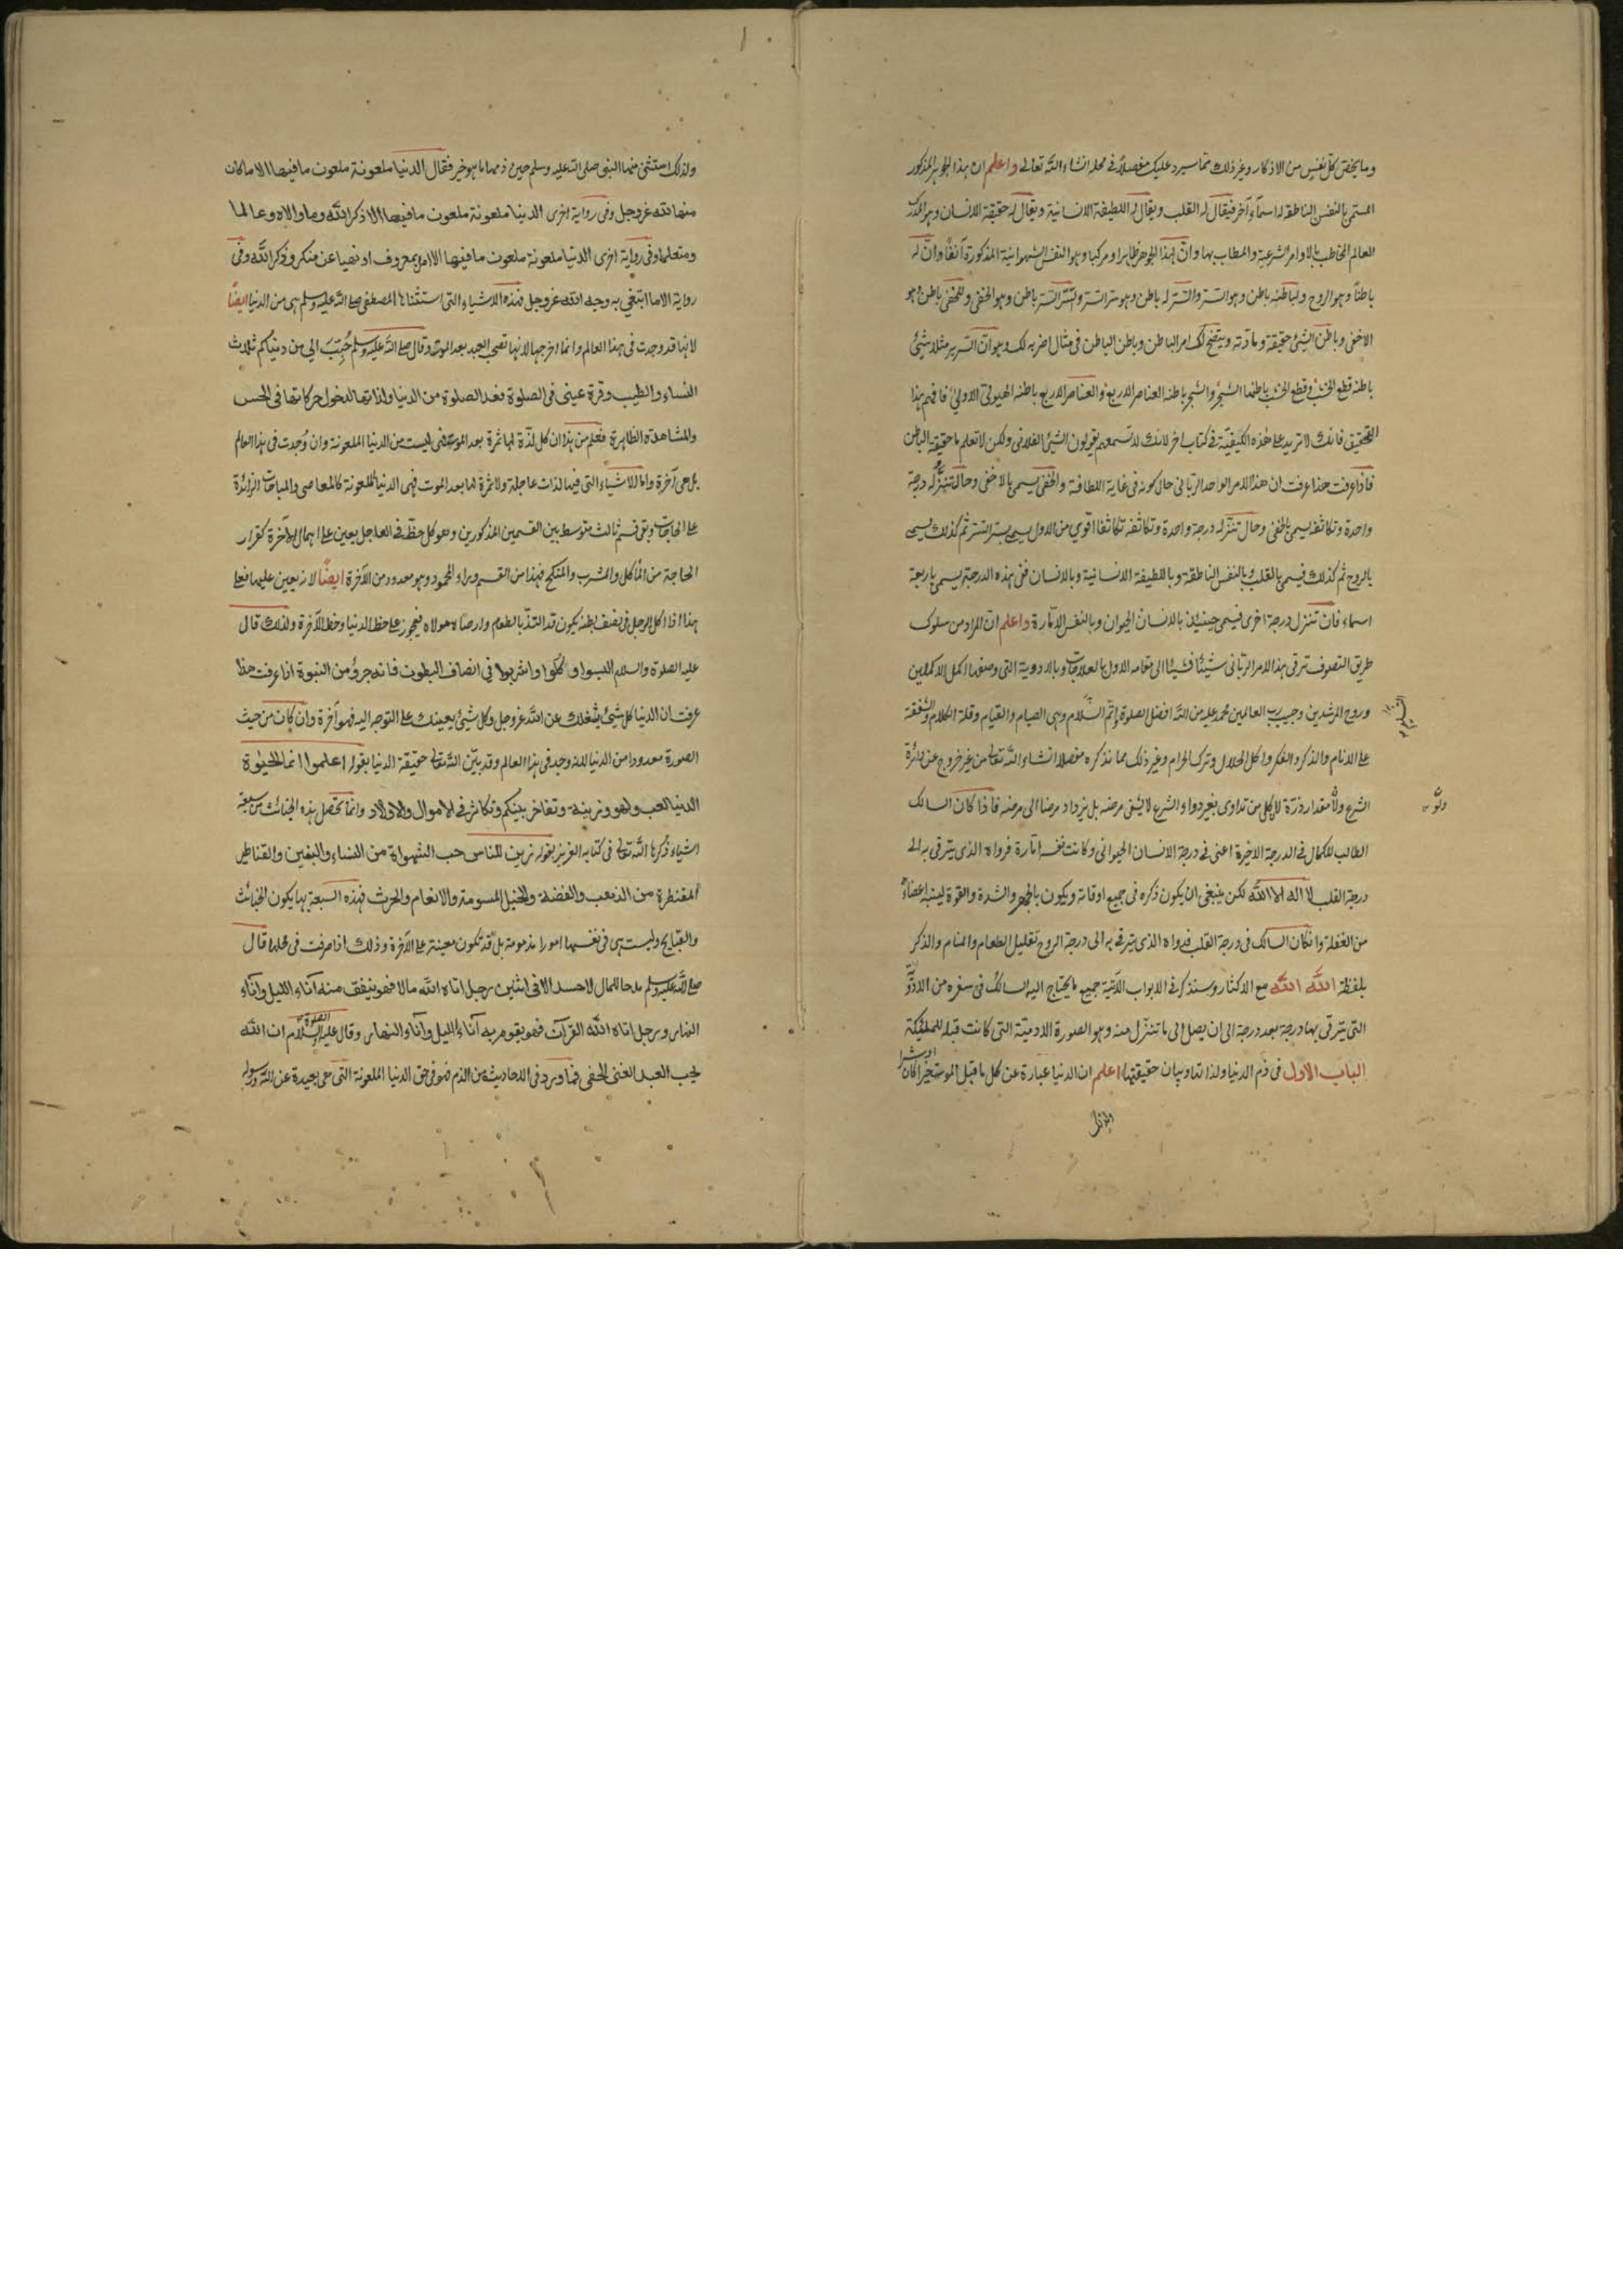 وما يختص كل نفس من الاذكار وغير ذلك مما سيرد عليك مفصلاً في محله انشاء الله تعالى واعلم ان هذا الجوهر المذكور
المسمى بالنفس الناطقة له اسماء آخر فيقال له القلب ويقال له اللطيفة الانسانية ويقال له حقيقة الانسان وهو المدرك
العالم المخاطب بالاوامر الشرعية والمطالب بها وان لهذا الجوهر ظاهرا ومركبا وهو النفس الشهوانية المذكورة آنفًا وان له
باطناً وهو الروح ولباطنه باطن وهو السر والسر له باطن وهو سر السر ولسر السر باطن وهو الخفي وللخفي باطن وهو
الاخفى وباطن الشيئ حقيقة ومادته ويتضح لك امر الباطن وباطن الباطن في مثال اضربه لك وهو ان السرير مثلا شيئ
باطنه قطع الخشب وقطع الخشب باطنها الشجر والشجر باطنه العناصر الاربع والعناصر الاربع باطنه الهيولى الاولى فافهم هذا
التحقيق فانك لا تريد على هذه الكيفية في كتاب اخر لانك لا تسمعهم يقولون الشيئ الفلاني ولكن لا تعلم ما حقيقة الباطن
فاذا عرفت هذا عرفت ان هذا الامر الواحد الرباني حال كونه في غاية اللطافة والخفى يسمى بالاخفى وحال تنزله درجة
واحدة وتكاثفه يسمى بالخفى وحال تنزله درجة واحدة وتكاثفه تكاثفا اقوى من الاول يسمى بسر السر ثم كذلك يسمى
بالروح ثم كذلك فيسمى بالقلب وبالنفس الناطقة وباللطيفة الانسانية وبالانسان ففي هذه الدرجة يسمى باربعة
اسماء فان تنزل درجة اخرى فيسمى حينئذ بالانسان الحيوان وبالنفس الامّارة واعلم ان المراد من سلوك
طريق التصوف ترقى هذا الامر الرباني شيئًا فشيئا الى مقامه الاول بالعلاجات وبالادوية التي وصفها اكمل الاكملين
وروح المرشدين وحبيب رب العالمين محمد عليه من الله افضل الصلوة واتم السلام وهي الصيام والقيام وقلة الكلام والشفقة
على الانام والذكر والفكر واكل الحلال وترك الحرام وغير ذلك مما نذكره مفصلا انشاء الله تعالى من غير خروج عن دائرة
الشرع ولو مقدار ذرة لان كل من تداوى بغير دواء الشرع لا يشفى مرضه بل يزداد مرضا الى مرضه فاذا كان السالك
الطالب للكمال في الدرجة الاخيرة اعني في درجة الانسان الحيواني وكانت نفسه امّارة فدواه الذي يترقى به الى
درجة القلب لا اله الا الله لكن ينبغي ان يكون ذكره في جميع اوقاته ويكون بالجهر والشدة والقوة لينبه اعضاء
من الغفلة وان كان السالك في درجة القلب فدواه الذي يترقى به الى درجة الروح تقليل الطعام والمنام والذكر
بلفظة الله الله مع الاكثار وسنذكر في الابواب الآتية جميع ما يحتاج اليه السالك في سفره من الادوية
التي يترقى بها درجة بعد درجة الى ان يصل الى ما تنزل منه وهو الصورة الادميّة التي كانت قبله للملئكة
الباب الاول في ذم الدنيا ولذاتها وبيان حقيقتها اعلم ان الدنيا عبارة عن كل ما قبل الموت خيرا كان
او شرا
ولذلك استثنى منها النبي صلى الله عليه وسلم حين ذمها ما هو خير فقال الدنيا ملعونة ملعون ما فيها الا ما كان
منها لله عز وجل وفي رواية اخرى الدنيا ملعونة ملعون ما فيها الا ذكر الله وما والاه وعالما
ومتعلما وفي رواية اخرى الدنيا ملعونة ملعون ما فيها الا امر بمعروف او نهيا عن منكر وذكر الله وفي
رواية الا ما ابتغي به وجه الله عز وجل فهذه الاشياء التي استثناها المصطفى صلى الله عليه وسلم هي من الدنيا ايضًا
لانها قد وجدت في هذا العالم وانما اخرجها لانها تصحب العبد بعد الموت وقال صلى الله عليه وسلم حُبِّبَ الي من دنياكم ثلاث
النساء والطيب وقرة عيني في الصلوة فعد الصلوة من الدنيا ولذاتها لدخول حركاتها في الحس
والمشاهدة الظاهرة فعلم من هذا ان كل لذّة لها ثمرة بعد الموت فهي ليست من الدنيا الملعونة وان وُجدت في هذا العالم
بل هي آخرة واما الاشياء التي فيها لذات عاجلة ولا ثمرة لها بعد الموت فهي الدنيا الملعونة كالمعاصي والمباحات الزائدة
على الحاجات وبقى قسم ثالث متوسط بين القسمين المذكورين وهو كل حظّ في العاجل يعين على اعمال الآخرة كقدر
الحاجة من المأكل والمشرب والمنكح فهذا من القسم المحمود وهو معدود من الآخرة ايضًا لانه يعين عليها فعلى
هذا اذا اكل الرجل في نصف بطنه يكون قد التذ بالطعام وارضاه مولاه فيحوز على حظ الدنيا وحظ الآخرة ولذلك قال
عليه الصلوة والسلام البسوا وكلوا واشربوا في انصاف البطون فانه جزؤ من النبوة اذا عرفت هذا
عرفت ان الدنيا كل شيئ يشغلك عن الله عز وجل وكل شيئ يعينك على التوجه اليه فهو آخرة وان كان من حيث
الصورة معدودا من الدنيا لانه وجد في هذا العالم وقد بيّن الله تعالى حقيقة الدنيا بقوله اعلموا انما الحيٰوة
الدنيا لعب ولهو وزينة وتفاخر بينكم وتكاثر في الاموال والاولاد وانما تحصل هذه الخبائث من سبعة
اشياء ذكرها الله تعالى في كتابه العزيز بقوله زين للناس حب الشهواة من النساء والبنين والقناطير
المقنطرة من الذهب والفضة والخيل المسومة والانعام والحرث فهذه السبعة بها يكون الخبائث
والقبائح وليست هي في نفسها امورا مذمومة بل قد تكون معينة على الآخرة وذلك اذا صرفت في محلها قال
صلى الله عليه وسلم مدحا للمال لا حسد الا في اثنين رجل اتاه الله مالا فهو ينفق منه آناء الليل وآناء
النهار ورجل اتاه الله القرآن فهو يقوم به آناء الليل وآناء النهار وقال عليه الصلوة والسلام ان الله
يحب العبد الغني الخفي فما ورد في الاحاديث من الذم فهو في حق الدنيا الملعونة التي هي بعيدة عن الله ورسوله